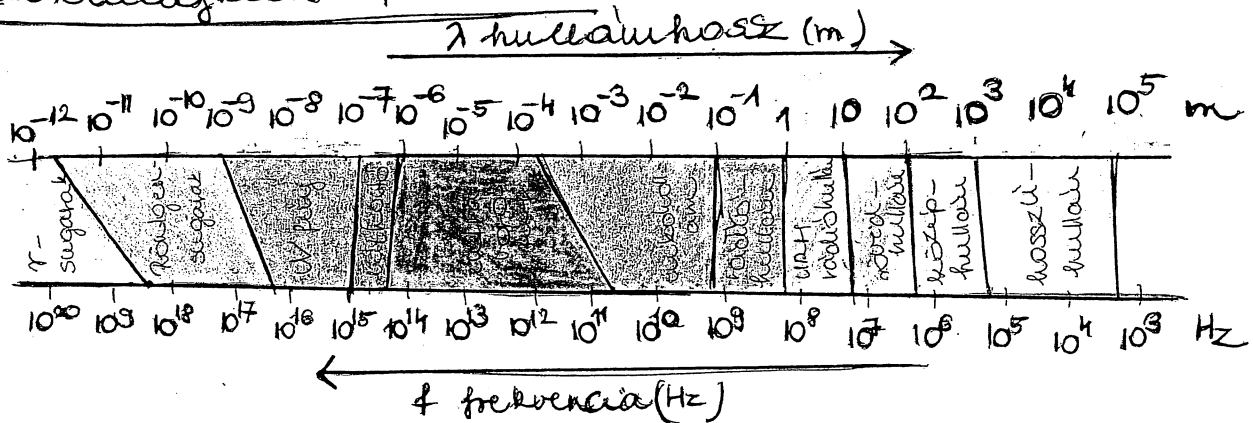 λ hullámhossz (m)
10⁻¹² 10⁻¹¹ 10⁻¹⁰ 10⁻⁹ 10⁻⁸ 10⁻⁷ 10⁻⁶ 10⁻⁵ 10⁻⁴ 10⁻³ 10⁻² 10⁻¹ 1 10 10² 10³ 10⁴ 10⁵ m
γ-
sugarak
Röntgen
sugarak
UV fény
rádió-
hullám
URH
rádióhullám
rövid-
hullám
közép-
hullám
hosszú-
hullám
10²⁰ 10⁹ 10¹⁸ 10¹⁷ 10¹⁶ 10¹⁵ 10¹⁴ 10¹³ 10¹² 10¹¹ 10¹⁰ 10⁹ 10⁸ 10⁷ 10⁶ 10⁵ 10⁴ 10³ Hz
f frekvencia (Hz)